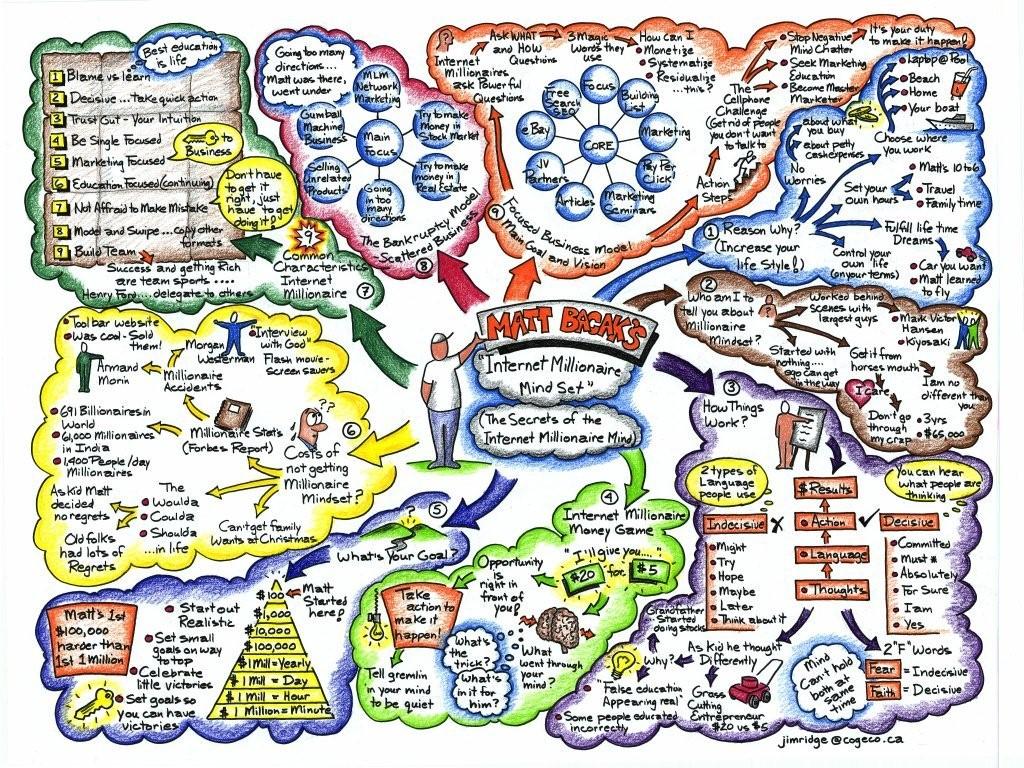 MATT BACAK'S
"Internet Millionaire
Mind Set"
(The Secrets of the
Internet Millionaire Mind)
1 Reason Why?
(Increase your
life Style!)
No
Worries
about petty
cash expenses
about what
you buy
Choose where
you work
Laptop @ Pool
Beach
Home
Your boat
Set your
own hours
Matt's 10 to 6
Travel
Family time
Fulfill life time
Dreams
Control your
own life
(on your terms)
Car you want
Matt learned
to fly
2
Who am I to
tell you about
Millionaire
Mindset?
?
Worked behind
scenes with
largest guys
Mark Victor
Hansen
Kiyosaki
Started with
nothing....
ego can get
in the way
Get it from
horses mouth
I care
I am no
different than
you
Don't go
through
my crap
3yrs
$65,000
3
How Things
Work?
2 types of
Language
people use
You can hear
what people are
thinking
$ Results
Indecisive X
Action
Decisive
Language
Thoughts
Might
Try
Hope
Maybe
Later
Think about it
Committed
Must *
Absolutely
For Sure
I am
Yes
2 "F" Words
Fear = Indecisive
Faith = Decisive
Mind
Can't hold
both at
same
time
As Kid he thought
Differently
Why?
Grandfather
Started
doing stocks
"False education
Appearing real"
Some people educated
incorrectly
Grass
Cutting
Entrepreneur
$20 vs $5
4
Internet Millionaire
Money Game
"I'll give you...."
$20 for $5
Opportunity
is right in
front of
you!
Take
action to
make it
happen!
What's
the
trick?
What's
in it for
him?
What
went through
your mind?
Tell gremlin
in your mind
to be quiet
5
?
What's Your Goal?
Matt
Started
here!
$100
$1,000
$10,000
$100,000
$1 Mill = Yearly
$1 Mill = Day
$1 Mill = Hour
$1 Million = Minute
Matt's 1st
$100,000
harder than
1st 1 Million
Start out
Realistic
Set small
goals on way
to top
Celebrate
little victories
Set goals so
you can have
victories
6
??
Costs of
not getting
Millionaire
Mindset?
Millionaire Stats
(Forbes Report)
691 Billionaires in
World
61,000 Millionaires
in India
1,400 People/day
Millionaires
Millionaire
Accidents
Tool bar website
Was cool - Sold
them!
Armand
Morin
Morgan
Westerman
"Interview
with God"
Flash movie -
Screen savers
The
Woulda
Coulda
Shoulda
...in life
As kid Matt
decided
no regrets
Old folks
had lots of
Regrets
Can't get family
wants at Christmas
7
9
Common
Characteristics
Internet
Millionaire
Best education
is life
1 Blame vs learn
2 Decisive ... take quick action
3 Trust Gut - Your Intuition
4 Be Single Focused
5 Marketing Focused
6 Education Focused (continuing)
7 Not Affraid to Make Mistake
8 Model and Swipe ... copy other
formats
9 Build Team
to
Business
Don't have
to get it
right, just
have to get
doing it!
Success and getting Rich
are team sports ....
Henry Ford....delegate to others
8
The Bankruptcy Model
- Scattered Business
Going too many
directions...
Matt was there,
went under
Main
Focus
MLM
Network
Marketing
Try to make
money in
Stock Market
Try to make
money in
Real Estate
Going
in too many
directions
Selling
Unrelated
Products
Gumball
Machine
Business
9
Focused Business Model
Main Goal and Vision
CORE
Focus
Building
List
Marketing
Pay Per
Click
Marketing
Seminars
Articles
JV
Partners
eBay
Free
Search
SEO
?
Internet
Millionaires
ask Powerful
Questions
Ask WHAT
and HOW
Questions
3 Magic
Words they
use
How can I
Monetize
Systematize
Residualize
...this?
Action
Steps
The
Cellphone
Challenge
(Get rid of people
you don't want
to talk to
Stop Negative
Mind Chatter
Seek Marketing
Education
Become Master
Marketer
It's your duty
to make it happen!
jimridge@cogeco.ca